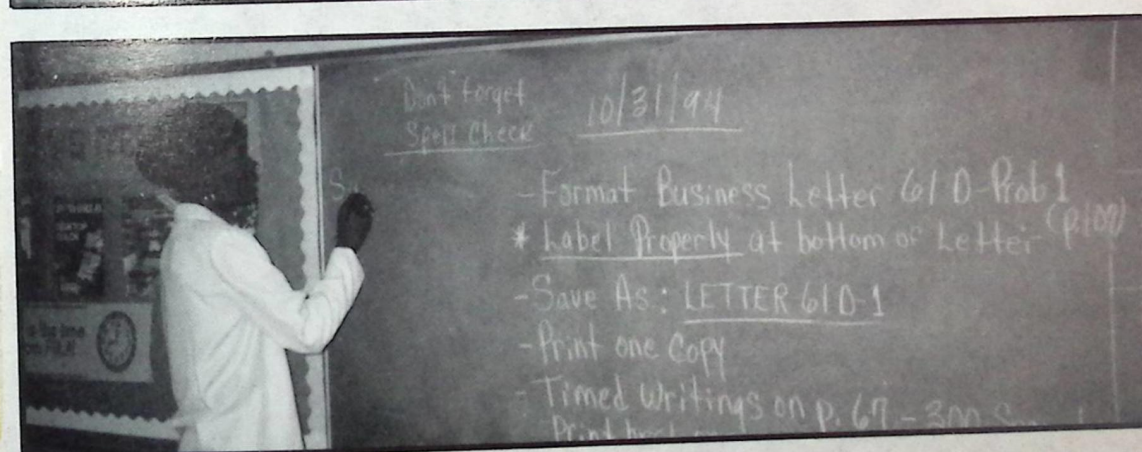 Don't forget
Spell Check
10/31/94
- Format Business Letter 61D-Prob 1
(p.109)
* Label Properly at bottom of Letter
- Save As: LETTER61D-1
- Print one Copy
- Timed Writings on p. 67 - 300
Print